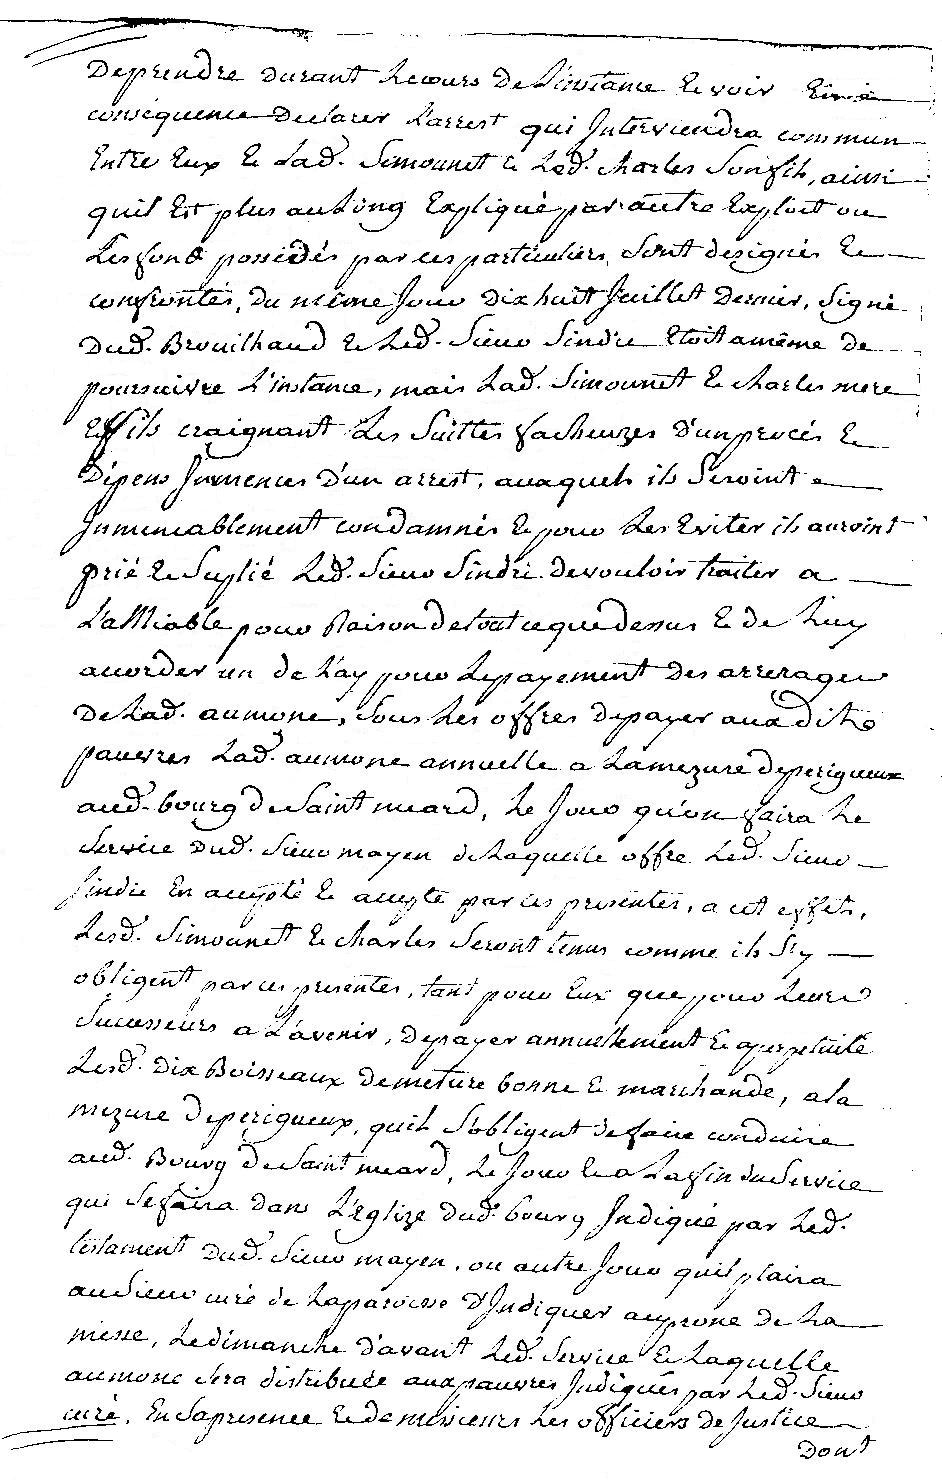 deprendre durant Lecours de Linstance Et voir En
conséquence declarer Larrest qui Interviendra commun
Entre Eux Et Lad. Simounet Et Led. charles Son fils, ainsi
quil Est plus au Long Expliqué par autre Exploit ou
Les fond possedés par ces particuliers, Sont designés Et
confrontés, du même Jour dix huit Juillet dernier, Signé
dud. Brouilhaud Et Led. Sieur Sindic Etoit amême de
poursuivre L'instance, mais Lad. Simounet Et charles mere
Et fils craignant Les Suittes facheuzes d'un procés Et
dépens Jmmences d'un arrest, auxquels ils Seroint
Jnmencablement condamnés Et pour Les Eviter ils auroint
prié Et Suplié Led. Sieur Sindic de vouloir traiter a
L'aMiable pour Raison de tout ce que dessus Et de Luy
accorder un de L'ay pour Lepayement des arrerages
de Lad. aumone, Sous Les offres depayer aux dits
pauvres Lad. aumone annuelle a Lamezure deperigueux
aud. bourg de Saint meard, Le Jour qu'on faira Le
Service dud. Sieur mayen de Laquelle offre Led. Sieur
Sindic En accepté Et accepte par ces presentes, a cet effet,
Lesd. Simounet Et charles Seront tenus comme ils S'y
obligent par ces presentes, tant pour Eux que pour Leurs
Successeurs a L'avenir, depayer annuellement Et aperpetuité
Lesd. dix Boisseaux demeture bonne Et marchande, a la
mezure deperigueux, quils S'obligent de faire conduire
aud. Bourg de Saint meard, Le Jour Et a Lafin du Service
qui Sefaira dans L'Eglize dud. bourg Jndiqué par Led.
testament dud. Sieur mayen, ou autre Jour quil plaira
au Sieur curé de Laparoisse d'Jndiquer auprone de La
messe, Le dimanche d'avant Led. Service Et Laquelle
aumone Sera distribuée aux pauvres Jndiqués par Led. Sieur
curé, En Sapresence Et de messieurs Les officiers de Justice
dont